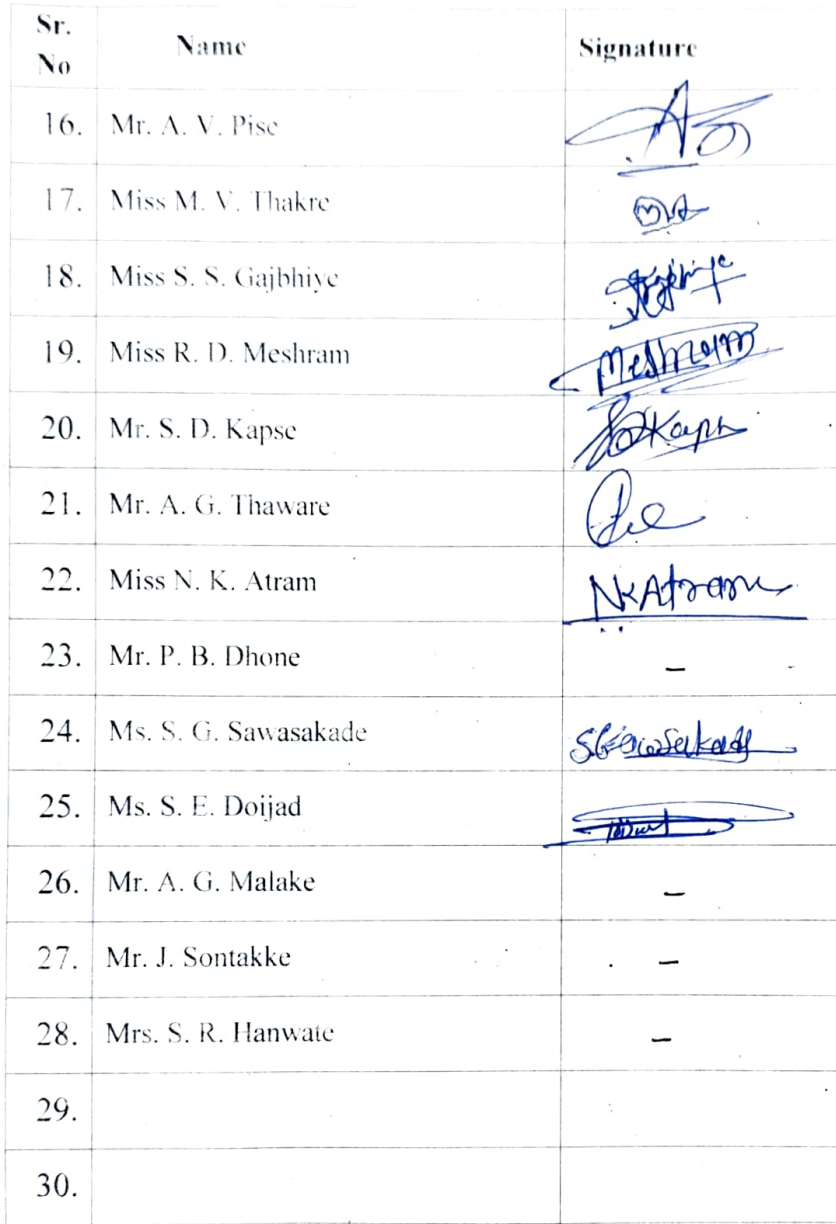 Sr. No Name Signature
16. Mr. A. V. Pise
17. Miss M. V. Thakre
18. Miss S. S. Gajbhiye Gajbhiye
19. Miss R. D. Meshram Meshram
20. Mr. S. D. Kapse
21. Mr. A. G. Thaware
22. Miss N. K. Atram NKAtram
23. Mr. P. B. Dhone –
24. Ms. S. G. Sawasakade
25. Ms. S. E. Doijad
26. Mr. A. G. Malake –
27. Mr. J. Sontakke –
28. Mrs. S. R. Hanwate –
29.
30.